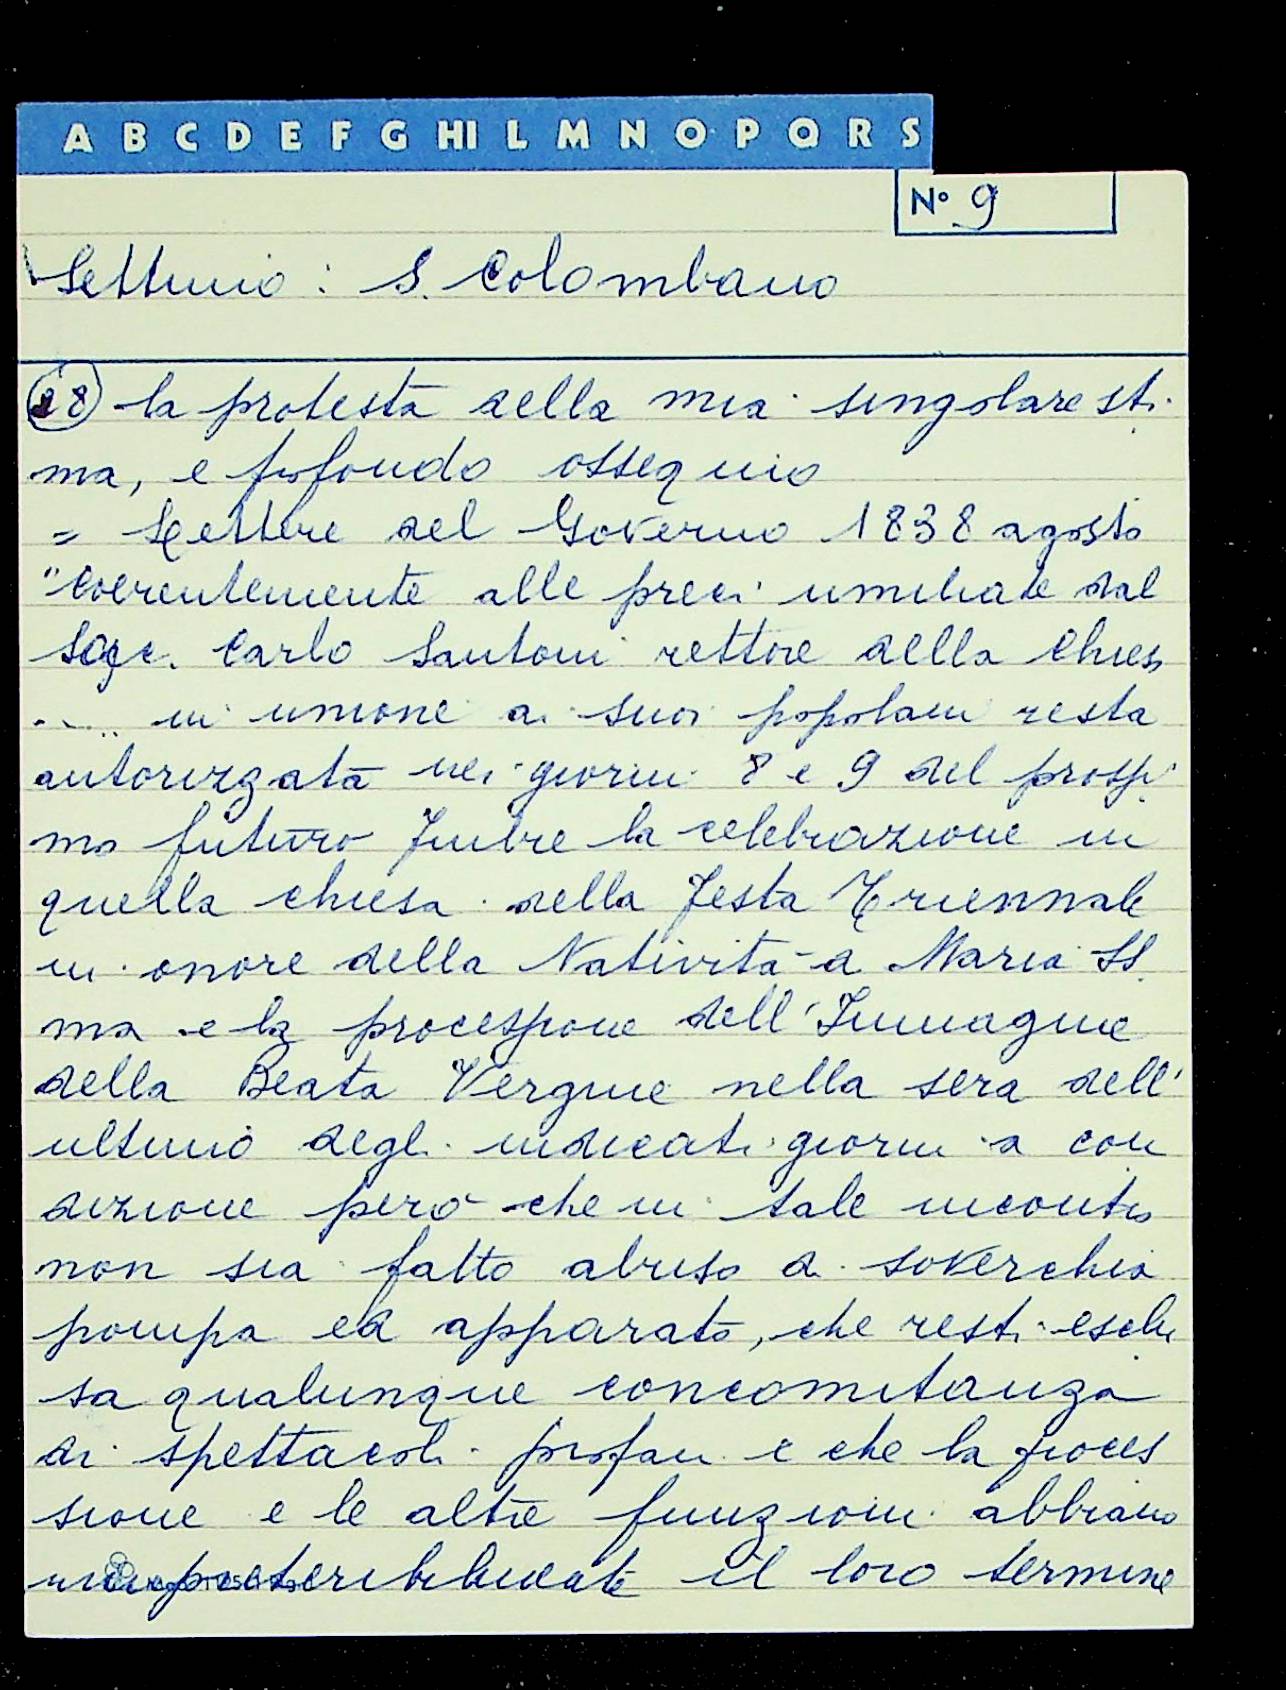 A B C D E F G HI L M N O P Q R S
N° 9
Settimo : S. Colombano
28 la protesta della mia singolare sti
ma, e profondo ossequio
= Lettere del Governo 1838 agosto
"Coerentemente alle preci umiliate dal
Sace. Carlo Santoni rettore della Chies
..... in unione ai suoi popolani resta
autorizzata nei giorni 8 e 9 del prossi
mo futuro 7mbre la celebrazione in
quella chiesa della festa Triennale
in onore della Natività di Maria SS
ma e la processione dell'Immagine
della Beata Vergine nella sera dell'
ultimo degli indicati giorni a con
dizione però che in tale incontro
non sia fatto abuso di soverchia
pompa ed apparato, che resti esclu
sa qualunque concomitanza
di spettacoli profani e che la proces
sione e le altre funzioni abbiano
impreteribilmente il loro termine